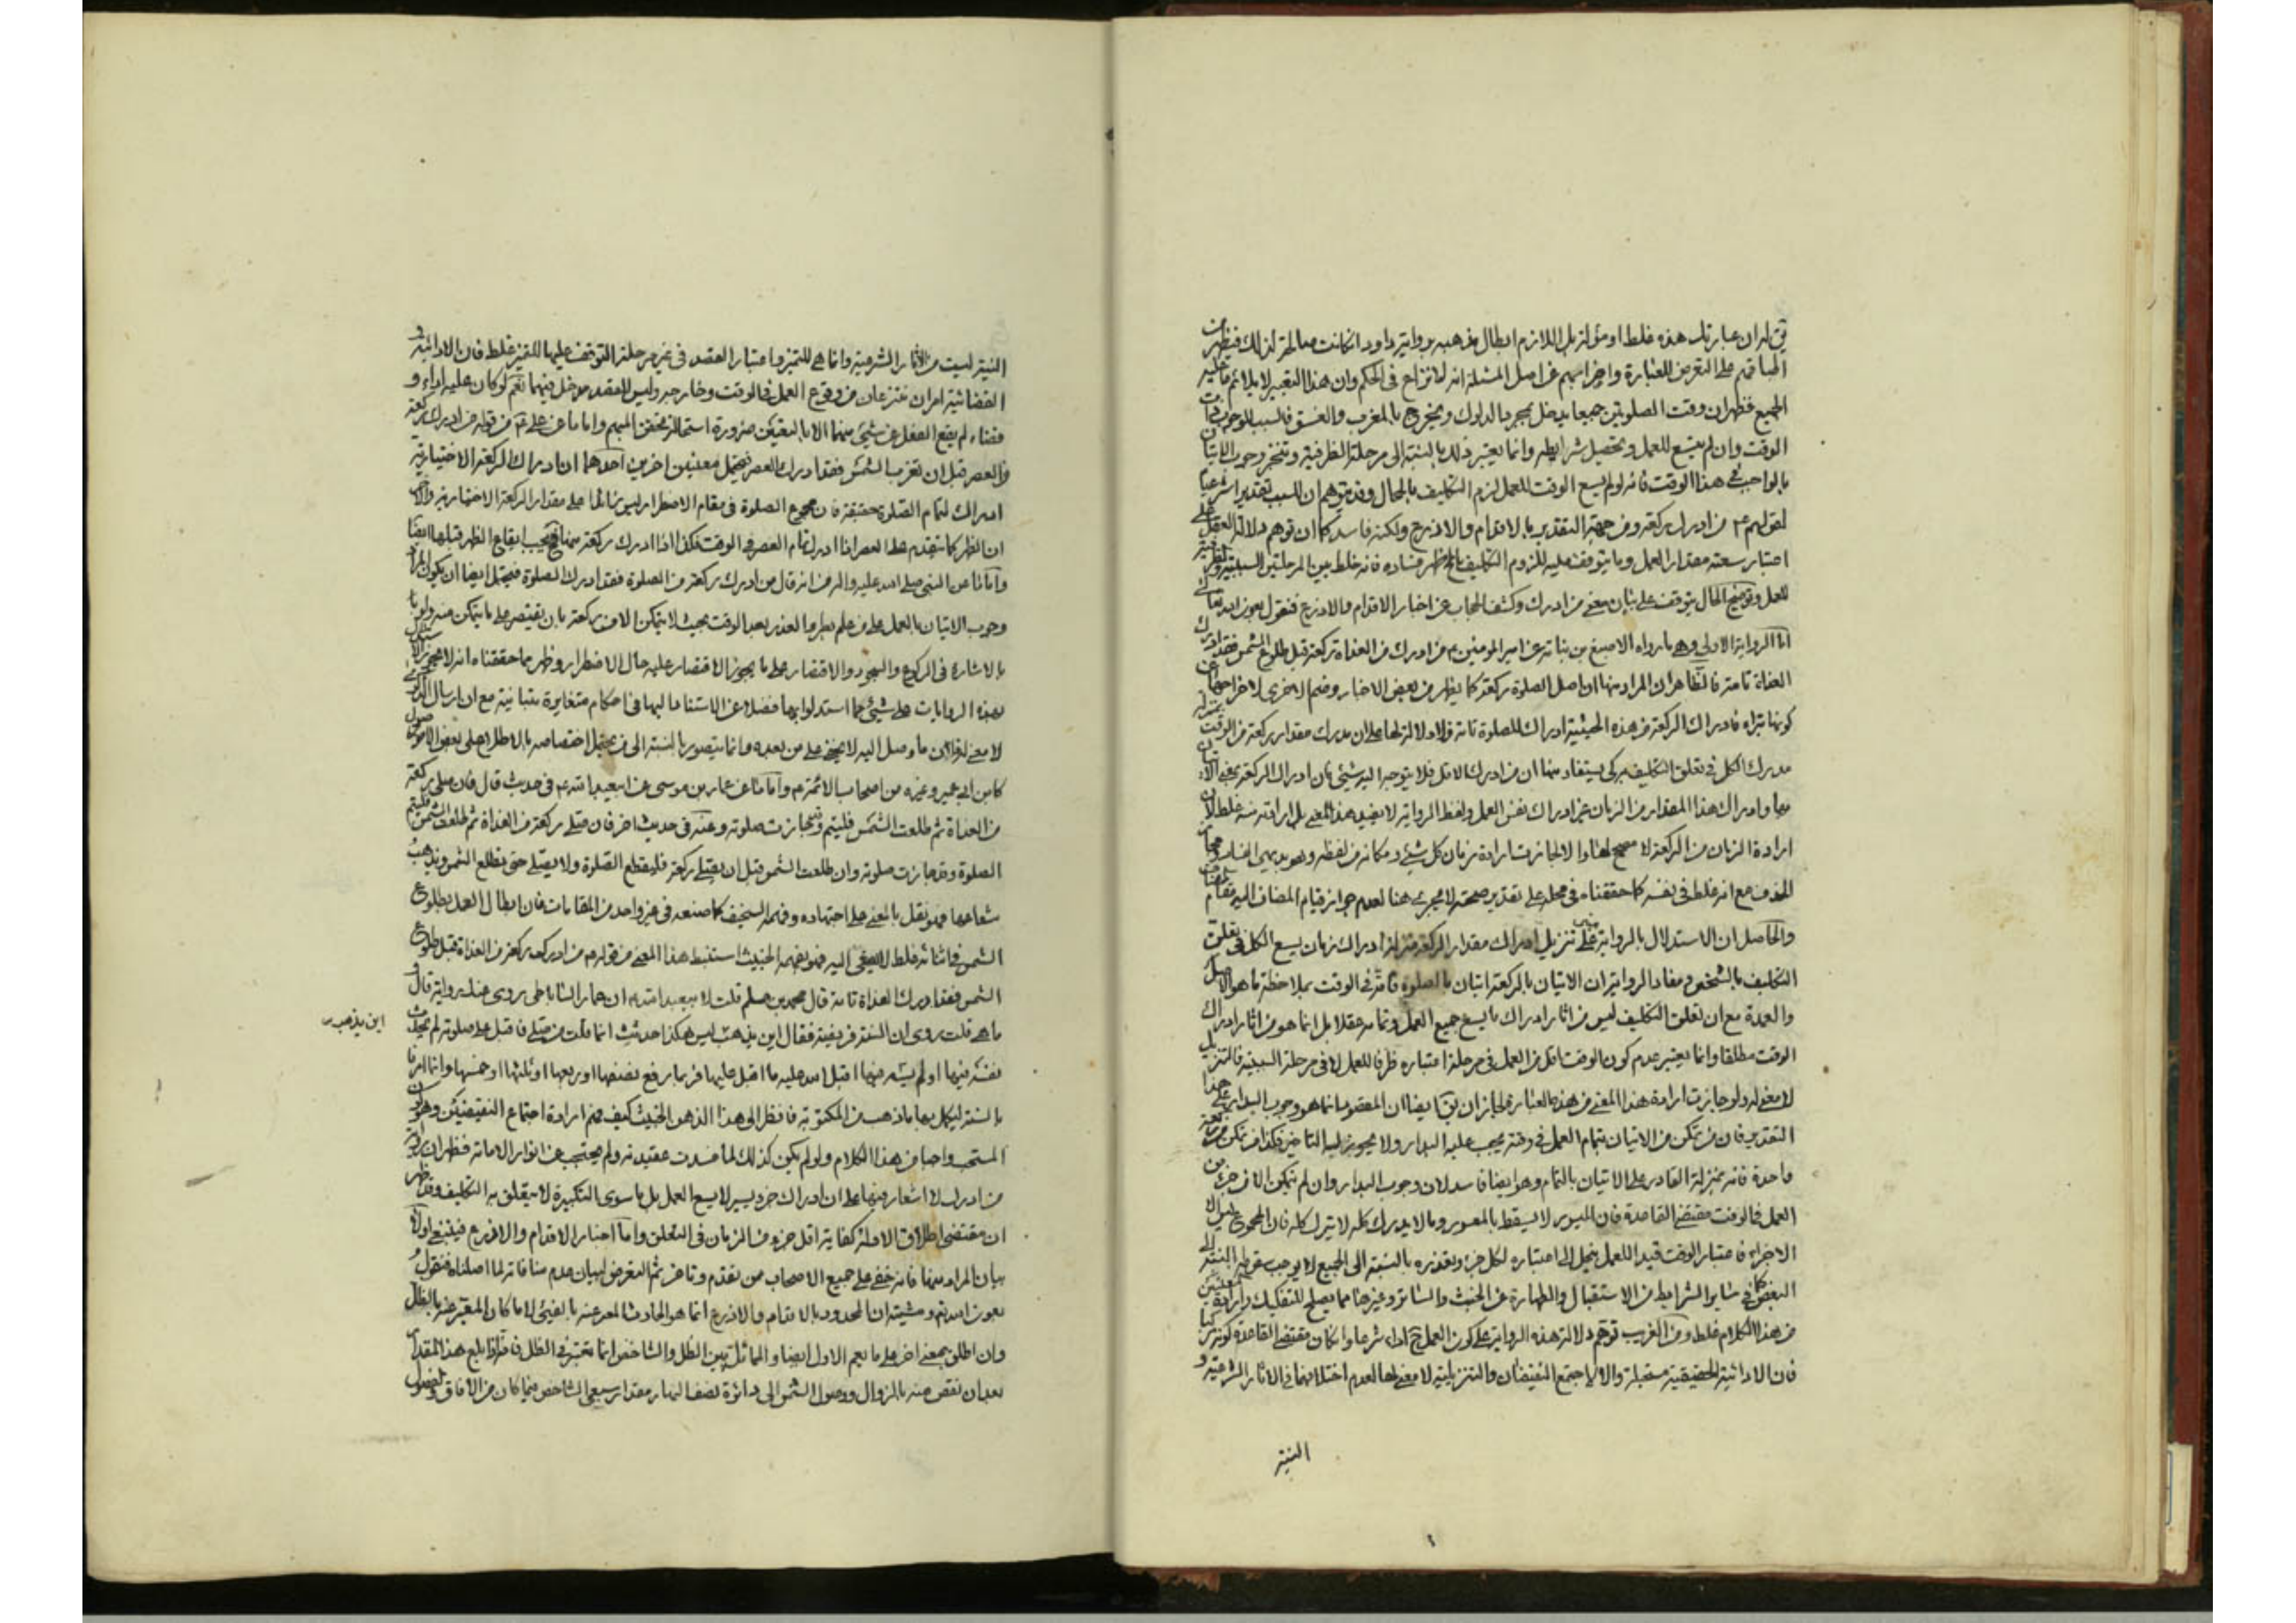 يق لران عبارتك هذه غلطا اومؤلة بل اللازم ابطال مذهبه برواية داود انكانت صالحة لذلك فيظهر من
اطباقهم على التعرض للعبارة واعراضهم عن اصل المسئلة انه لا نزاع فى الحكم وان هذا التعبير لا يلائم ما عليه
الجميع فظهر ان وقت الصلوتين جميعا يدخل بمجرد الدلوك ويخرج بالمغرب والغسق فالسبب للوجوب ذات
الوقت وان لم يتسع للعمل وتحصيل شرايطه وانما يعتبر ذلك بالنسبة الى مرحلة الظرفية وتنجز وجوب الاتيان
بالواجب فى هذا الوقت فانه لو لم يسع الوقت للعمل لزم التكليف بالمحال وقد يتوهم ان للسبب تقديرا شرعيا
لقولهم ع من ادرك ركعة ومن جهة التقدير بالاقدام والاذرع ولكنه فاسد كما ان توهم دلالة العقل على
اعتبار سعة مقدار العمل وما يتوقف عليه للزوم التكليف ظهر فساده فانه خلط بين المرحلتين السببية والظرفية
للعمل وتوضيح الحال يتوقف على بيان معنى من ادرك وكشف الحجاب عن اخبار الاقدام والاذرع فنقول بعون الله تعالى
اما الرواية الاولى وهى ما رواه الاصبغ بن نباته عن امير المومنين ع من ادرك من الغداة ركعة قبل طلوع الشمس فقد ادرك
الغداة تامة فالظاهر ان المراد منها ان اصل الصلوة ركعة كما يظهر من بعض الاخبار وضم الاخرى لاخراجها عن
كونها بتراء فادراك الركعة من هذه الحيثية ادراك للصلوة تامة ولا دلالة لها على ان مدرك مقدار ركعة من الوقت بمنزلة
مدرك الكل فى تعلق التكليف به كى يستفاد منها ان من ادرك الاقل فلا يتوجه اليه شيئى فان ادراك الركعة بمعنى الاتيان
بها وادراك هذا المقدار من الزمان غير ادراك نفس العمل ولفظ الرواية لا يفيد هذا المعنى بل ارادته منه غلط لان
ارادة الزمان من الركعة لا مصحح لها والا لجازت ارادة زمان كل شيئى ومكانه من لفظه وهو بديهى الفساد ومجاز
الحذف مع انه غلط فى نفسه كما حققناه فى محله على تقدير صحته لا يجرى هنا لعدم جواز قيام المضاف اليه مقام المضاف
والحاصل ان الاستدلال بالرواية مبنى على تنزيل ادراك مقدار الركعة منزلة ادراك زمان يسع الكل فى تعلق
التكليف بالشخص ومفاد الرواية ان الاتيان بالركعة اتيان بالصلوة تامة فى الوقت بملاحظة ما هو الاصل
والعمدة مع ان تعلق التكليف ليس من اثار ادراك ما يسع جميع العمل وتمامه عقلا بل انما هو من اثار ادراك
الوقت مطلقا وانما يعتبر عدم كون الوقت اقل من العمل فى مرحلة اعتباره ظرفا للعمل لا فى مرحلة السببية فالتنزيل
لا معنى له ولو جازت ارادة هذا المعنى من هذه العبارة لجاز ان يق ايضا ان المقصود انما هو وجوب البدار على هذا
التقدير فان من يتمكن من الاتيان بتمام العمل فى وقته يجب عليه البدار ولا يجوز له التاخير فكذا من تمكن من ركعة
واحدة فانه بمنزلة القادر على الاتيان بالتمام وهو ايضا فاسد لان وجوب البدار وان لم يتمكن الا من جزء من
العمل فى الوقت مقتضى القاعدة فان الميسور لا يسقط بالمعسور وما لا يدرك كله لا يترك كله فان المجموع ليس الا
الاجزاء فاعتبار الوقت قيدا للعمل ينحل الى اعتباره لكل جزء وتعذره بالنسبة الى الجميع لا يوجب سقوطه بالنسبة الى
البعض كما فى سائر الشرايط من الاستقبال والطهارة عن الخبث والساتر وغيرها مما يصلح للتفكيك وارادة معنيين
من هذا الكلام غلط ومن الغريب توهم دلالة هذه الرواية على كون العمل ح اداء شرعا وان كان مقتضى القاعدة كونه مركبا
فان الادائية الحقيقية مستحيلة والا لاجتمع النقيضان والتنزيلية لا معنى لها لعدم اختلافهما فى الاثار الشرعية و
النية
النية ليست من الاثار الشرعية وانما هى للتميز واعتبار القصد فى غير مرحلة التوقف عليها للتميز غلط فان الادائية و
القضائية امران ينتزعان من وقوع العمل فى الوقت وخارجه وليس للقصد مدخل فيهما نعم لو كان عليه اداء و
قضاء لم يقع الفعل عن شيئى منهما الا بالتعيين ضرورة استحالة تحقق المبهم واما ما عن على ع من قوله من ادرك ركعة
من العصر قبل ان تغرب الشمس فقد ادرك العصر فيحتمل معنيين اخرين احدهما ان ادراك الركعة الاختيارية
ادراك لتمام الصلوة حقيقة فان مجموع الصلوة فى مقام الاضطرار ليس زائدا على مقدار الركعة الاختيارية والاخر
ان الظهر كما يتقدم على العصر اذا ادرك تمام العصر فى الوقت فكذا اذا ادرك ركعة منها فيجب ايقاع الظهر قبلها ايضا
واما ما عن النبى صلى الله عليه واله من انه قال من ادرك ركعة من الصلوة فقد ادرك الصلوة فيحتمل ايضا ان يكون المراد
وجوب الاتيان بالعمل على من علم بطرو العذر بعد الوقت بحيث لا يتمكن الا من ركعة بان يقتصر على ما يتمكن منه ولو
بالاشارة فى الركوع والسجود والاقتصار على ما يجوز الاقتصار عليه حال الاضطرار وظهر مما حققناه انه لا يجوز الاستدلال
بهذه الروايات على شيئى مما استدلوا بها فضلا عن الاستناد اليها فى احكام متغايرة متباينة مع ان ارسال
لا معنى له فان ما وصل اليه لا يخفى على من بعده وانما يتصور بالنسبة الى من يحتمل اختصاصه بالاطلاع على بعض الاصول
كابن ابى عمير وغيره من اصحاب الائمة ع واما ما عن عمار بن موسى عن ابيعبد الله ع فى حديث قال فان صلى ركعة
من الغداة ثم طلعت الشمس فليتم وقد جازت صلوته وعنه فى حديث اخر فان صلى ركعة من الغداة ثم طلعت الشمس فليتم
الصلوة وقد جازت صلوته وان طلعت الشمس قبل ان يصلى ركعة فليقطع الصلوة ولا يصلى حتى تطلع الشمس ويذهب
شعاعها فهو نقل بالمعنى على اجتهاده وفهمه السخيف كما صنعه فى غير واحد من المقامات فان ابطال العمل بطلوع
الشمس فى اثنائه غلط لا يصغى اليه فهو بفهمه الخبيث استنبط هذا المعنى من قوله ع من ادرك ركعة من الغداة قبل طلوع
الشمس فقد ادرك الغداة تامة قال محمد بن مسلم قلت لابيعبد الله ع ان عمار الساباطى روى عنك رواية قال و
ما هى قلت روى ان السنة فريضة فقال اين يذهب اين يذهب ليس هكذا حدثته انما قلت من صلى فاقبل على صلوته لم يحدث
نفسه فيها او لم يسه فيها اقبل الله عليه ما اقبل عليها فربما رفع نصفها او ربعها او ثلثها او خمسها وانما امرنا
بالسنة ليكمل بها ما ذهب من المكتوبة فانظر الى هذا الذهن الخبيث كيف فهم ارادة اجتماع النقيضين وهو كون
المستحب واجبا من هذا الكلام ولو لم يكن كذلك لما فسدت عقيدته ولم يحتجب عن انوار الامامة فظهر ان رواية
من ادرك لا اشعار فيها على ان ادراك جزء يسير لا يسع العمل بل ما سوى التكبيرة لا يتعلق به التكليف وقد ظهر
ان مقتضى اطلاق الادلة كفاية اقل جزء من الزمان فى التعلق واما اخبار الاقدام والاذرع فينبغى اولا
بيان المراد منها فانه خفى على جميع الاصحاب ممن تقدم وتاخر ثم التعرض لبيان عدم منافاته لما اصلناه فنقول
بعون الله تع ومشيته ان المحدود بالاقدام والاذرع انما هو الحادث المعبر عنه بالفيئى لا ما كان المعبر عنه بالظل
وان اطلق بمعنى اخر على ما يعم الاول ايضا والمماثل بين الظل والشاخص انما يعتبر فى الظل فاذا بلغ هذا المقدار
بعد ان نقص منه بالزوال ووصول الشمس الى دائرة نصف النهار مقدار سبعى الشاخص فيما كان من الافاق
اين يذهب